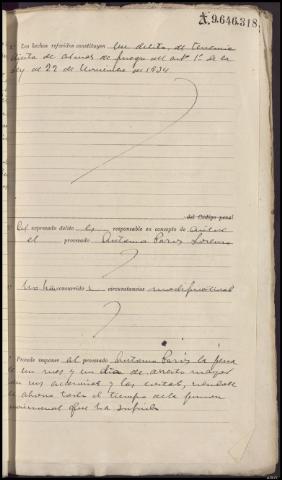 A.9.646.318
2º Los hechos referidos constituyen un delito, de tenencia
ilícita de armas de fuego del artº 1º de la
ley de 22 de Noviembre de 1934
del Código penal
Del expresado delito es responsable en concepto de autor
el procesado Antonio Lorenzo
No ha concurrido circunstancias modificativas
Procede imponer al procesado Antonio la pena
de un mes y un día de arresto mayor
y las costas,
de abono todo el tiempo de la prisión
que ha sufrido